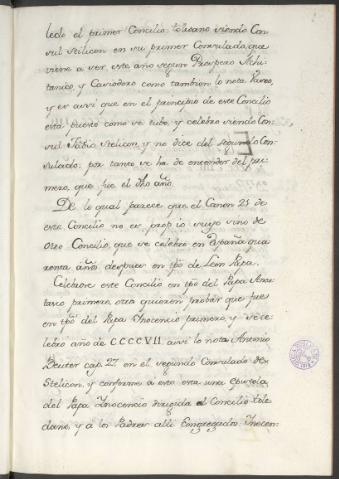 ledo el primer Concilio toledano siendo Con-
sul Stilicon en su primer Consulado, que
viene a ver, este año segun Prospero Aqui-
tanico, y Casiodoro como tambien lo nota Vaseo,
y es assi que en el principio de este Concilio
esta puesto como se tubo, y celebro siendo Con-
sul Fabio Stelicon, y no dice del segundo Con-
sulado: por tanto se ha de entender del pri-
mero, que fue el dho año.
De lo qual parece que el Canon 21 de
este Concilio no es proprio suyo sino de
otro Concilio, que se celebro en España qua
renta años despues en tpo de Leon Papa.
Celebrose este Concilio en tpo del Papa Anas-
tasio primero, otros quieren probar que fue
en tpo del Papa Inocencio primero, y se ce-
lebro año de CCCCVII. assi lo nota Antonio
Beuter cap. 27 en el segundo Consulado de
Stelicon, y confirma a esto otra una epistola
del Papa Inocencio dirigida al Concilio tole
dano, y a los Padres alli Congregados. Inocen: